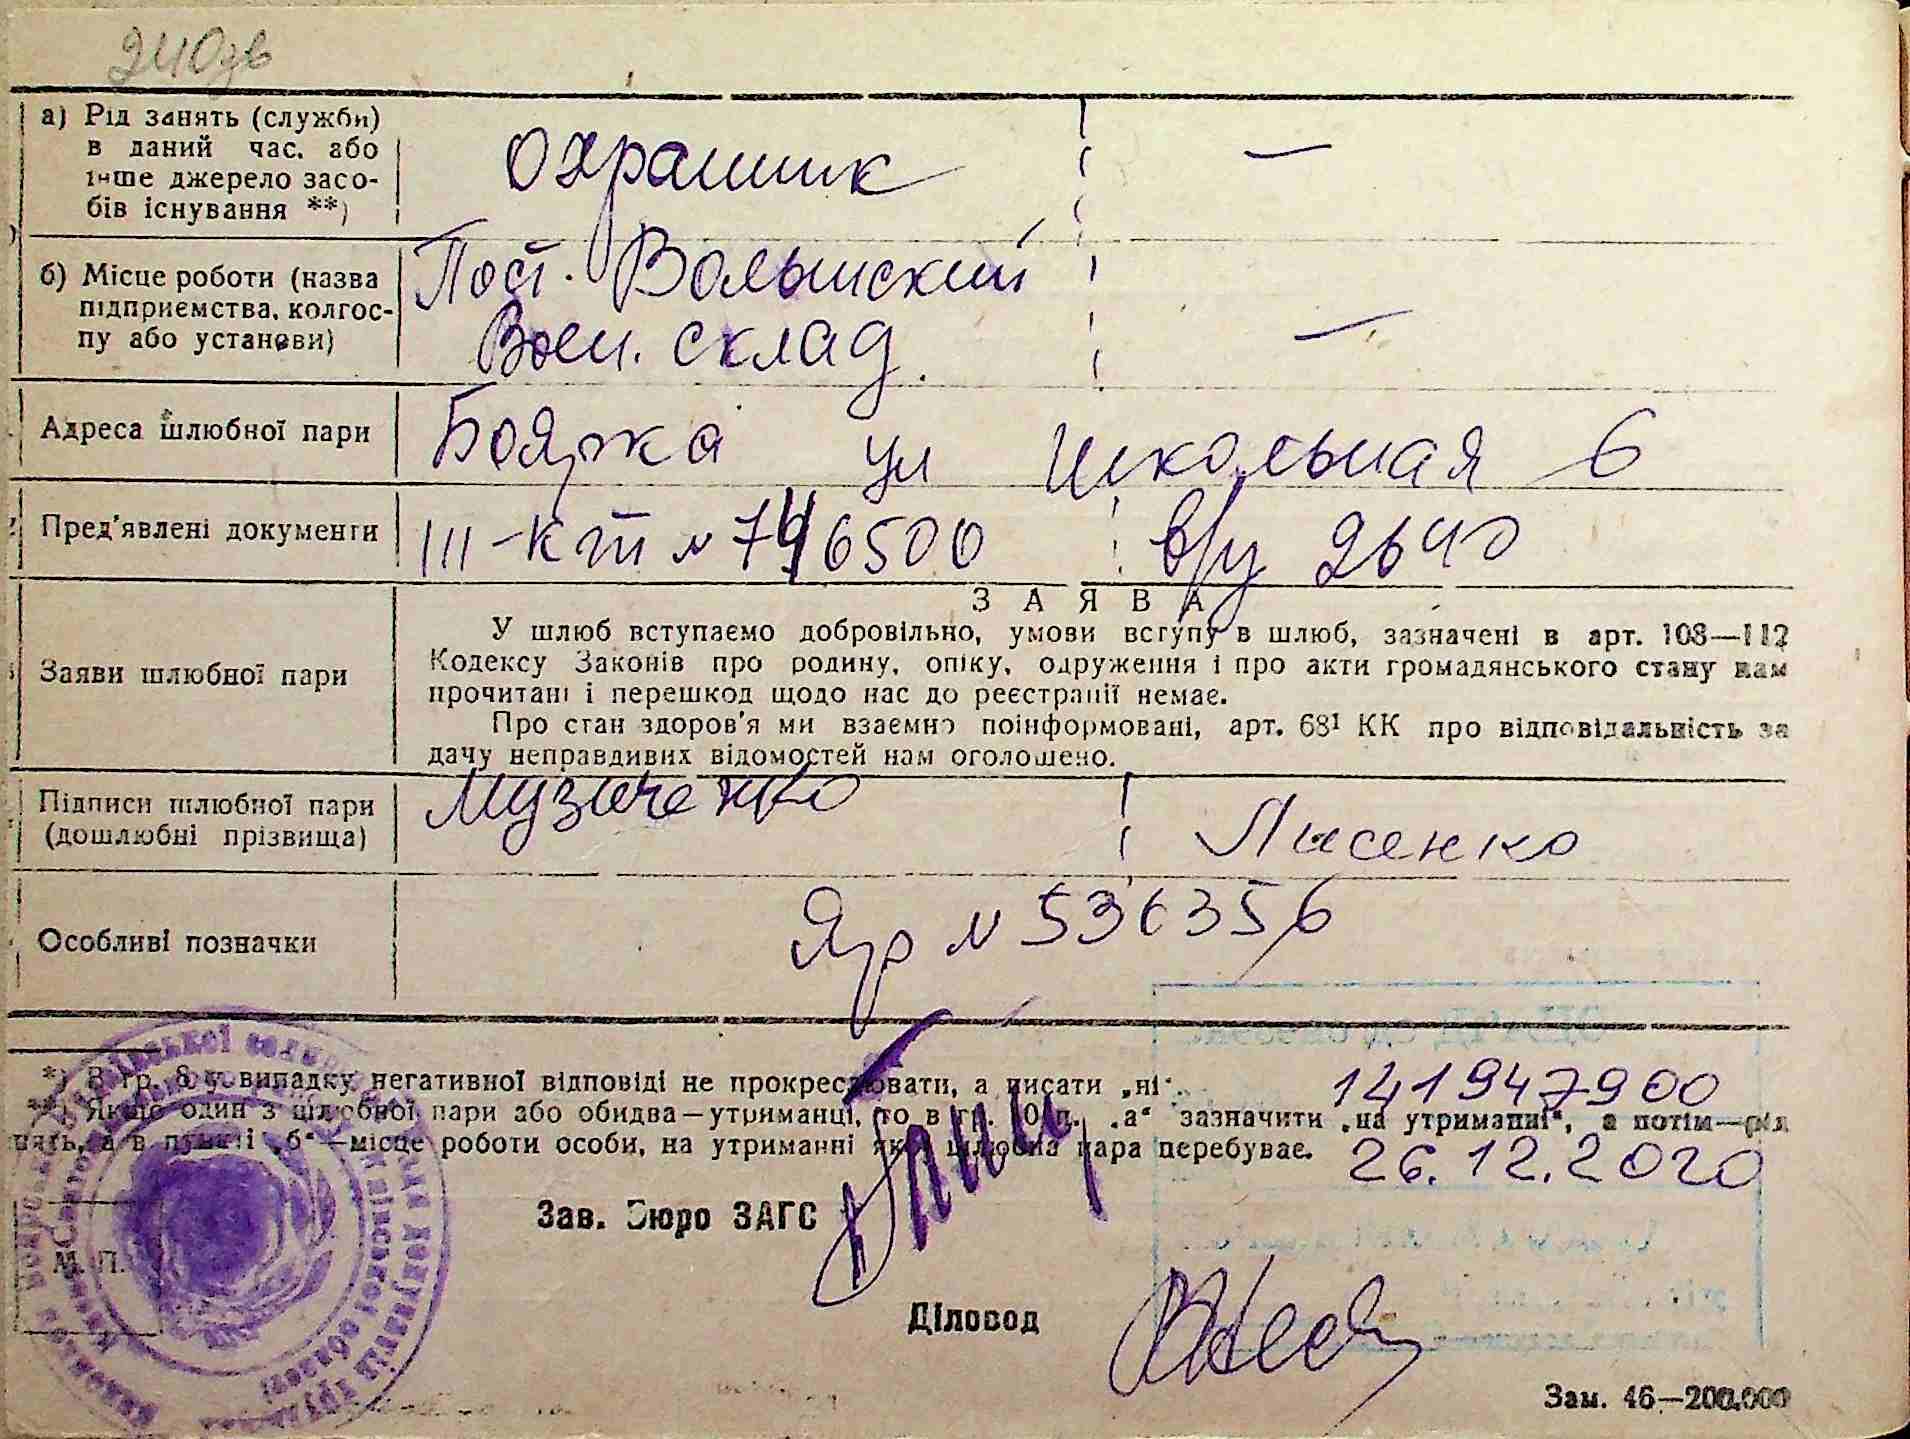 240зв
а) Рід занять (служби)
в даний час, або
інше джерело засо-
бів існування **)
Охраник
—
б) Місце роботи (назва
підприємства, колгос-
пу або установи)
Пост. Волынский
Воен. склад
—
Адреса шлюбної пари
Боярка ул Школьная 6
Пред'явлені документи
III-КТ № 746500
в/у 2640
Заяви шлюбної пари
ЗАЯВА
У шлюб вступаємо добровільно, умови вступу в шлюб, зазначені в арт. 108—112
Кодексу Законів про родину, опіку, одруження і про акти громадянського стану нам
прочитані і перешкод щодо нас до реєстрації немає.
Про стан здоров'я ми взаємно поінформовані, арт. 68¹ КК про відповідальність за
дачу неправдивих відомостей нам оголошено.
Підписи шлюбної пари
(дошлюбні прізвища)
Музиченко
Лисенко
Особливі позначки
Яр № 536356
*) В гр. 8 у випадку негативної відповіді не прокреслювати, а писати „ні“.
**) Якщо один з шлюбної пари або обидва—утриманці, то в гр. 10 п. „а“ зазначити „на утриманні“, а потім—рід
нять, а в пункті „б“—місце роботи особи, на утриманні якої шлюбна пара перебуває.
141947900
26.12.2020
Зав. Бюро ЗАГС
М. П.
Діловод
Зам. 46—200.000